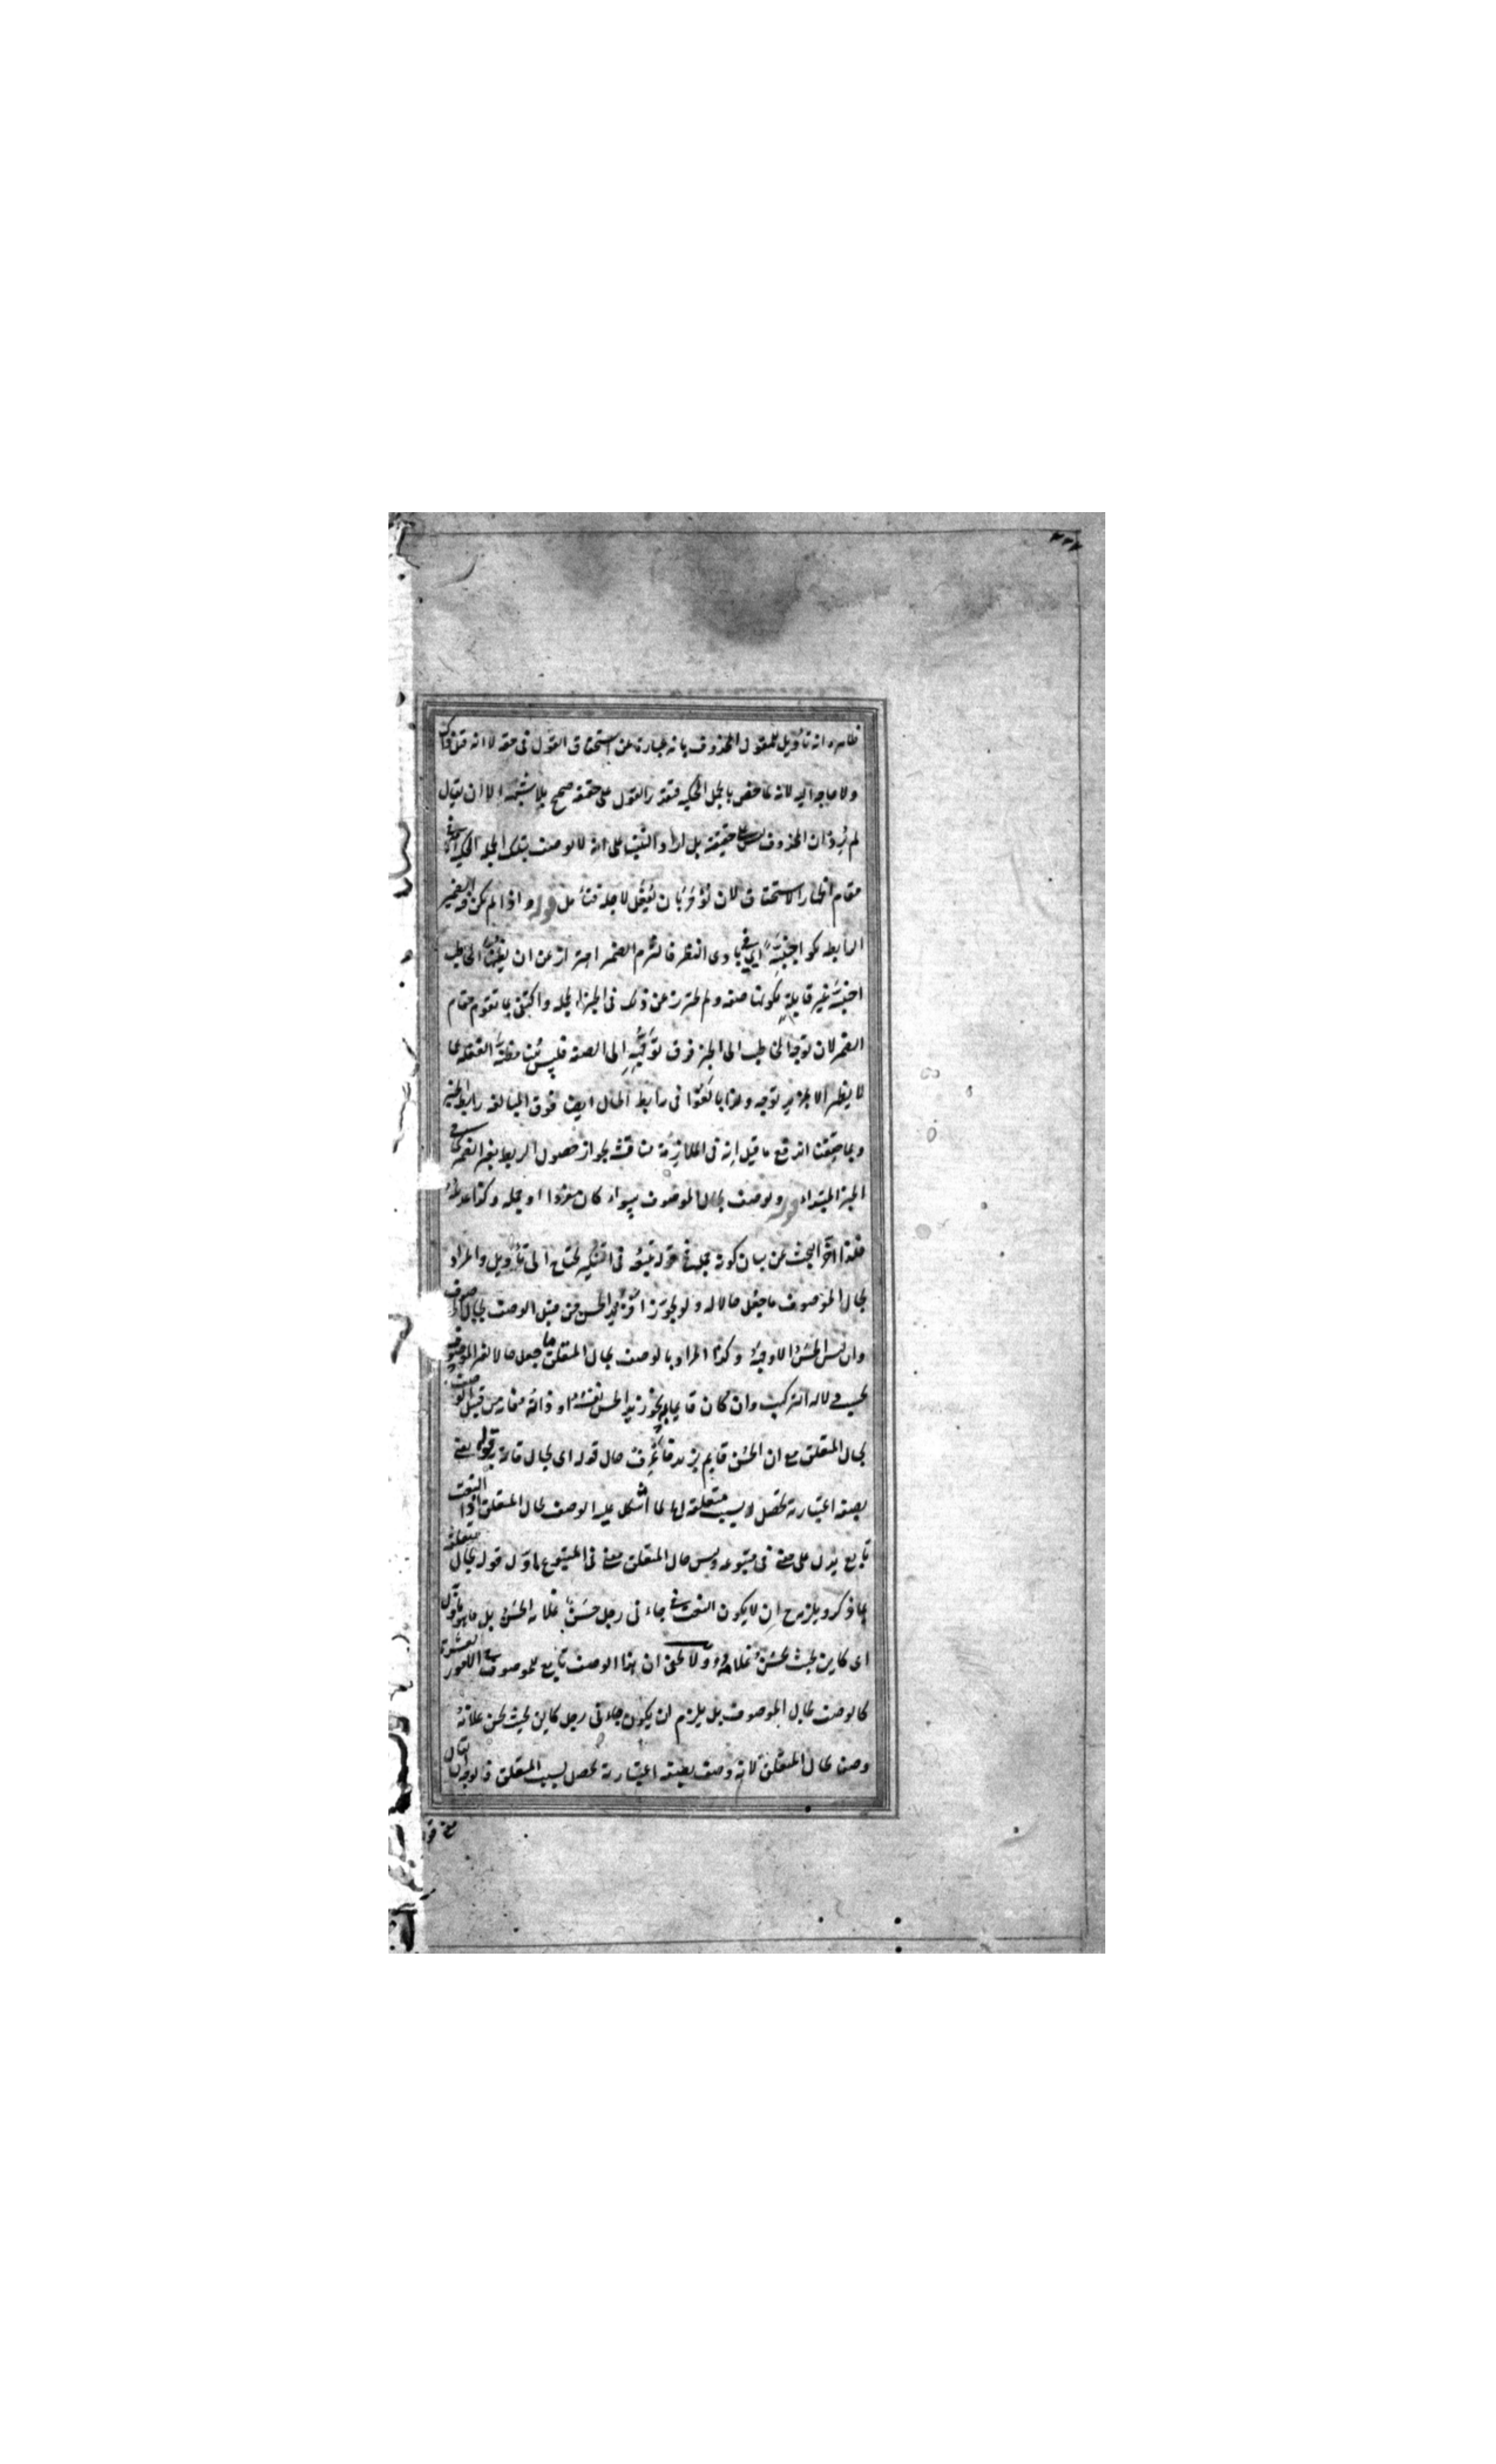 ظاهره انه تأويل للمقول المحذوف بانه عبارة عن استحقاق القول في حقه لا انه قيل ذلك
ولا حاجة اليه لانه لما خص بالجمل المحكية فتقدير القول على حقيقته صحيح بلا شبهة الا ان يقال
لم يرد ان المحذوف ليس على حقيقته بل اراد التنبيه على انه لا يوصف بتلك الجملة المحكية الا في
مقام اظهار الاستحقاق لان يؤمر بان يفعل لاجله فتأمل قوله واذا لم يكن فيه الضمير
الرابط يكون اجنبية اي في بادي النظر فالتزم الضمير احترازا عن ان يظنها المخاطب
اجنبية غير قابلة لكونها صفة ولم يحترز عن ذلك في الخبر الجملة واكتفى بما تقوم مقام
الضمير لان توجه المخاطب الى الخبر فوق توجهه الى الصفة فليس هنا مظنة الغفلة عما
لا يظهر الا بمزيد توجه ولذا بالغوا في رابط الحال ايضا فوق المبالغة رابط الخبر
وبما حققنا اندفع ما قيل انه في الملازمة مناقشة لجواز حصول الربط بغير الضمير كما في
الخبر المبتداء قوله ويوصف بحال الموصوف سواء كان مفردا او جملة وكذا
فلذا اخر البحث عن بيان كونه جملة في قوله يتبعه في التنكير يحتاج الى تأويل والمراد
بحال الموصوف ما جعل حالا له ولو تجوزا فزيد الحسن من قبيل الوصف بحال الموصوف
وان ليس الحسن الا وجهه وكذا المراد بالوصف بحال المتعلق ما جعل حالا لغير الموصوف
بحسب دلالة التركيب وان كان قائما به نحو زيد الحسن نفسه او ذاته فانه من قبيل الوصف
بحال المتعلق مع ان الحسن قايم بزيد حال قوله اي بحال قائمة به قوله يعني
بصفة اعتبارية تحصل له بسبب متعلقه لما اشكل عليه الوصف بحال المتعلق اذا النعت
تابع يدل على معنى في متبوعه وليس حال المتعلق معنى في المتبوع اول قوله بحال متعلقه
بما ذكر ويلزمه ح ان لا يكون النعت في جاءني رجل حسن غلامه الحسن بل ما يؤول
اي كاين بحيث يحسن غلامه ولا يخفى ان هذا الوصف تابع للموصوف في الامور العشرة
كالوصف بحال الموصوف بل يلزم ان يكون جاءني رجل كاين بحيث يحسن غلامه
وصف بحال المتعلق لانه وصف بصفة اعتبارية تحصل بسبب المتعلق فالوجه ان يقال
معنى قوله